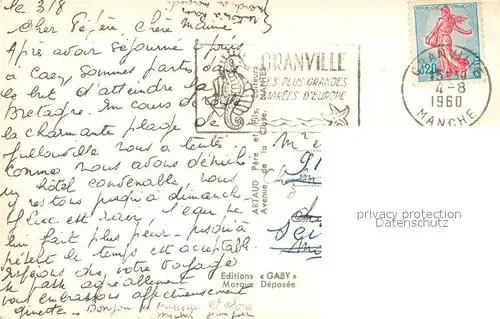 le 3/8
Cher Pépère, Chère Mamie
Après avoir séjourné
à Caen, sommes partis dans
le but d'atteindre la
Bretagne. En cours de route
la charmante plage de
Jullouville nous a tentés.
Comme nous avons déniché
un hôtel convenable, nous
y restons jusqu'à dimanche.
est ravi, l'eau ne
lui fait plus peur - jusqu'à
présent le temps est acceptable.
Espérons que votre voyage
se passe agréablement
vous embrassons affectueusement
Ginette. - Bonjour
GRANVILLE
SES PLUS GRANDES
MARÉES D'EUROPE
RÉPUBLIQUE FRANÇAISE
0,20
GRANVILLE
15-30
4-8
1960
MANCHE
ARTAUD Père et Fils, Éditeurs
Avenue de la Close, NANTES
Editions « GABY »
Marque Déposée
privacy protection
Datenschutz